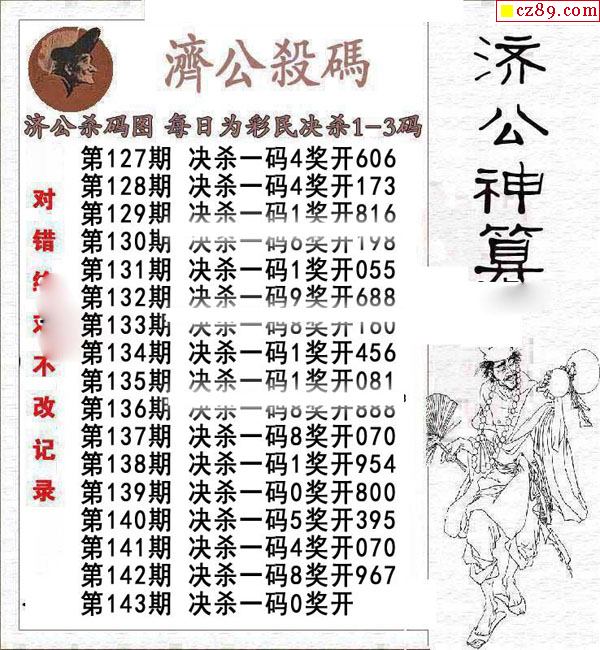 cz89.com
濟公殺碼
济公杀码图 每日为彩民决杀1-3码
第127期 决杀一码4奖开606
第128期 决杀一码4奖开173
第129期 决杀一码1奖开816
第130期 决杀一码6奖开198
第131期 决杀一码1奖开055
第132期 决杀一码9奖开688
第133期 决杀一码8奖开160
第134期 决杀一码1奖开456
第135期 决杀一码1奖开081
第136期 决杀一码8奖开888
第137期 决杀一码8奖开070
第138期 决杀一码1奖开954
第139期 决杀一码0奖开800
第140期 决杀一码5奖开395
第141期 决杀一码4奖开070
第142期 决杀一码8奖开967
第143期 决杀一码0奖开
对错 不改记录
济公神算